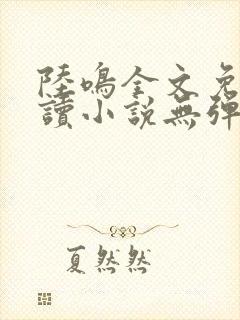 陸鳴全文免
讀小說無彈
夏然然